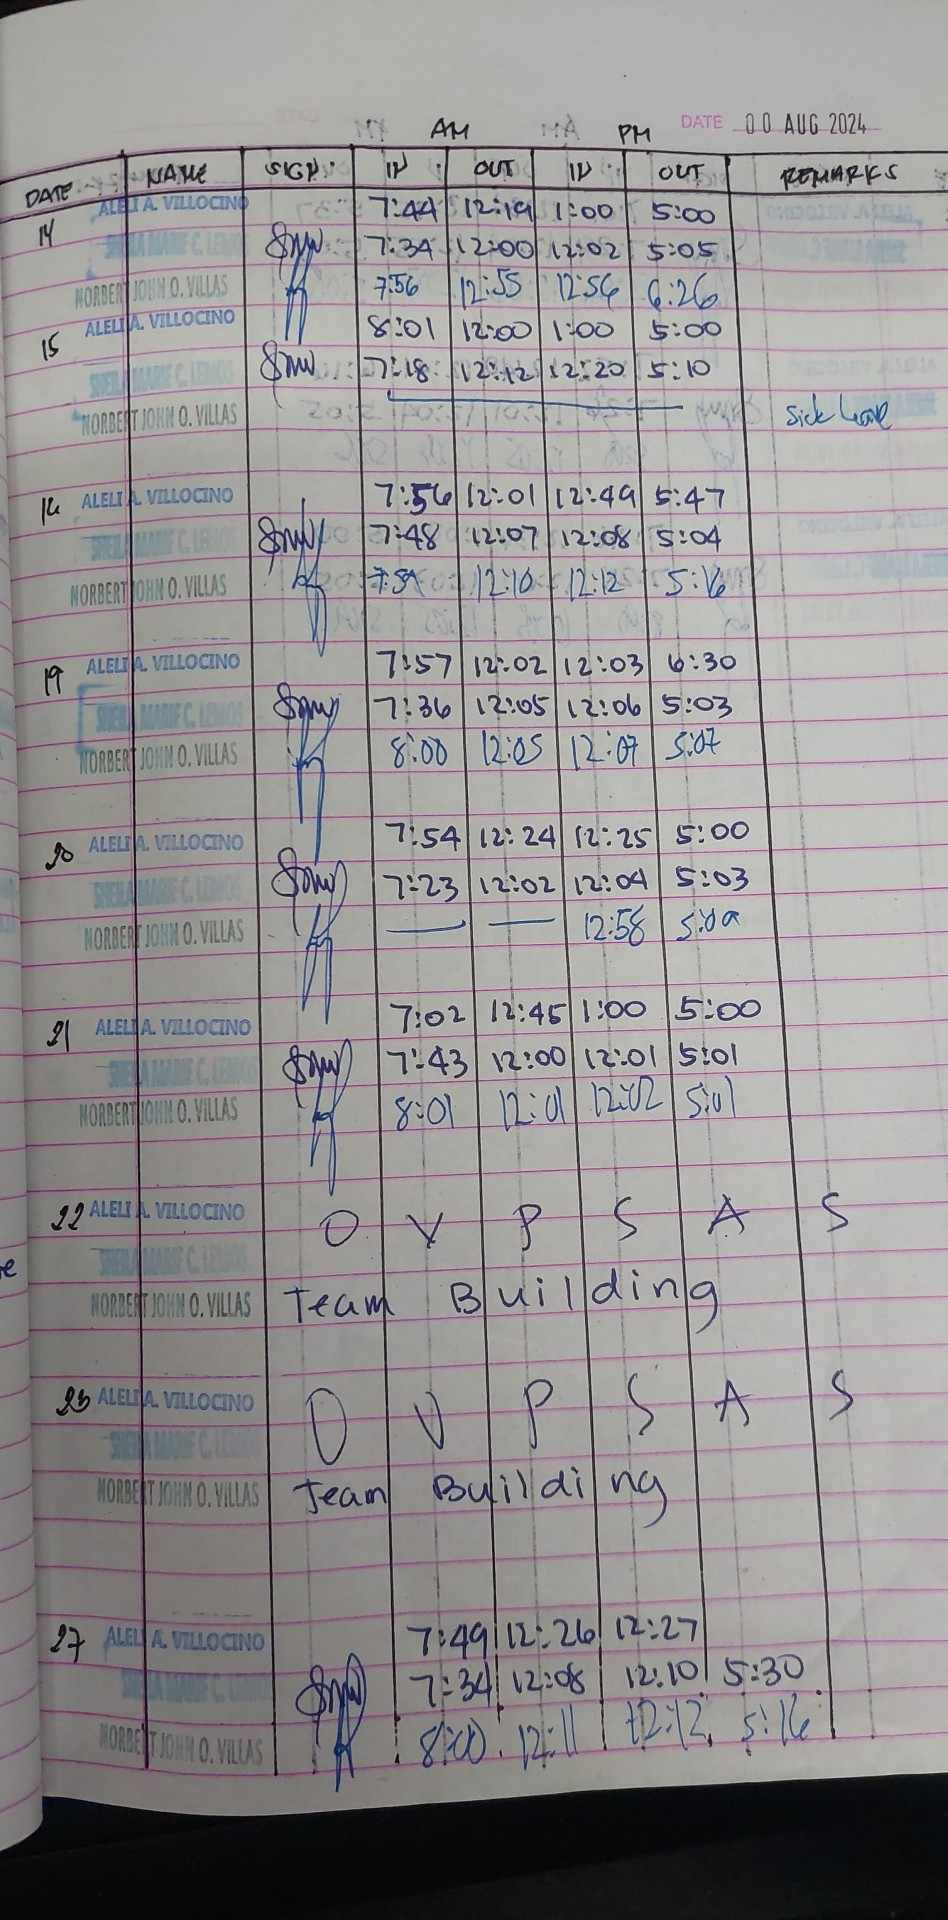 AM PM DATE 00 AUG 2024
DATE NAME SIGN IN OUT IN OUT REMARKS
14 ALELI A. VILLOCINO 7:44 12:19 1:00 5:00
SHEILA MARIE C. LEMOS 7:34 12:00 12:02 5:05
NORBERT JOHN O. VILLAS 7:56 12:55 12:56 6:26
15 ALELI A. VILLOCINO 8:01 12:00 1:00 5:00
SHEILA MARIE C. LEMOS 7:18 12:12 12:20 5:10
NORBERT JOHN O. VILLAS Sick leave
16 ALELI A. VILLOCINO 7:56 12:01 12:49 5:47
SHEILA MARIE C. LEMOS 7:48 12:07 12:08 5:04
NORBERT JOHN O. VILLAS 12:10 12:12 5:16
19 ALELI A. VILLOCINO 7:57 12:02 12:03 6:30
SHEILA MARIE C. LEMOS 7:36 12:05 12:06 5:03
NORBERT JOHN O. VILLAS 8:00 12:05 12:07 5:07
20 ALELI A. VILLOCINO 7:54 12:24 12:25 5:00
SHEILA MARIE C. LEMOS 7:23 12:02 12:04 5:03
NORBERT JOHN O. VILLAS — — 12:58
21 ALELI A. VILLOCINO 7:02 12:45 1:00 5:00
SHEILA MARIE C. LEMOS 7:43 12:00 12:01 5:01
NORBERT JOHN O. VILLAS 8:01 12:01 12:02 5:01
22 ALELI A. VILLOCINO O V P S A S
SHEILA MARIE C. LEMOS
NORBERT JOHN O. VILLAS Team Building
23 ALELI A. VILLOCINO O V P S A S
SHEILA MARIE C. LEMOS
NORBERT JOHN O. VILLAS Team Building
27 ALELI A. VILLOCINO 7:49 12:26 12:27
SHEILA MARIE C. LEMOS 7:34 12:08 12:10 5:30
NORBERT JOHN O. VILLAS 8:00 12:11 12:12 5:16